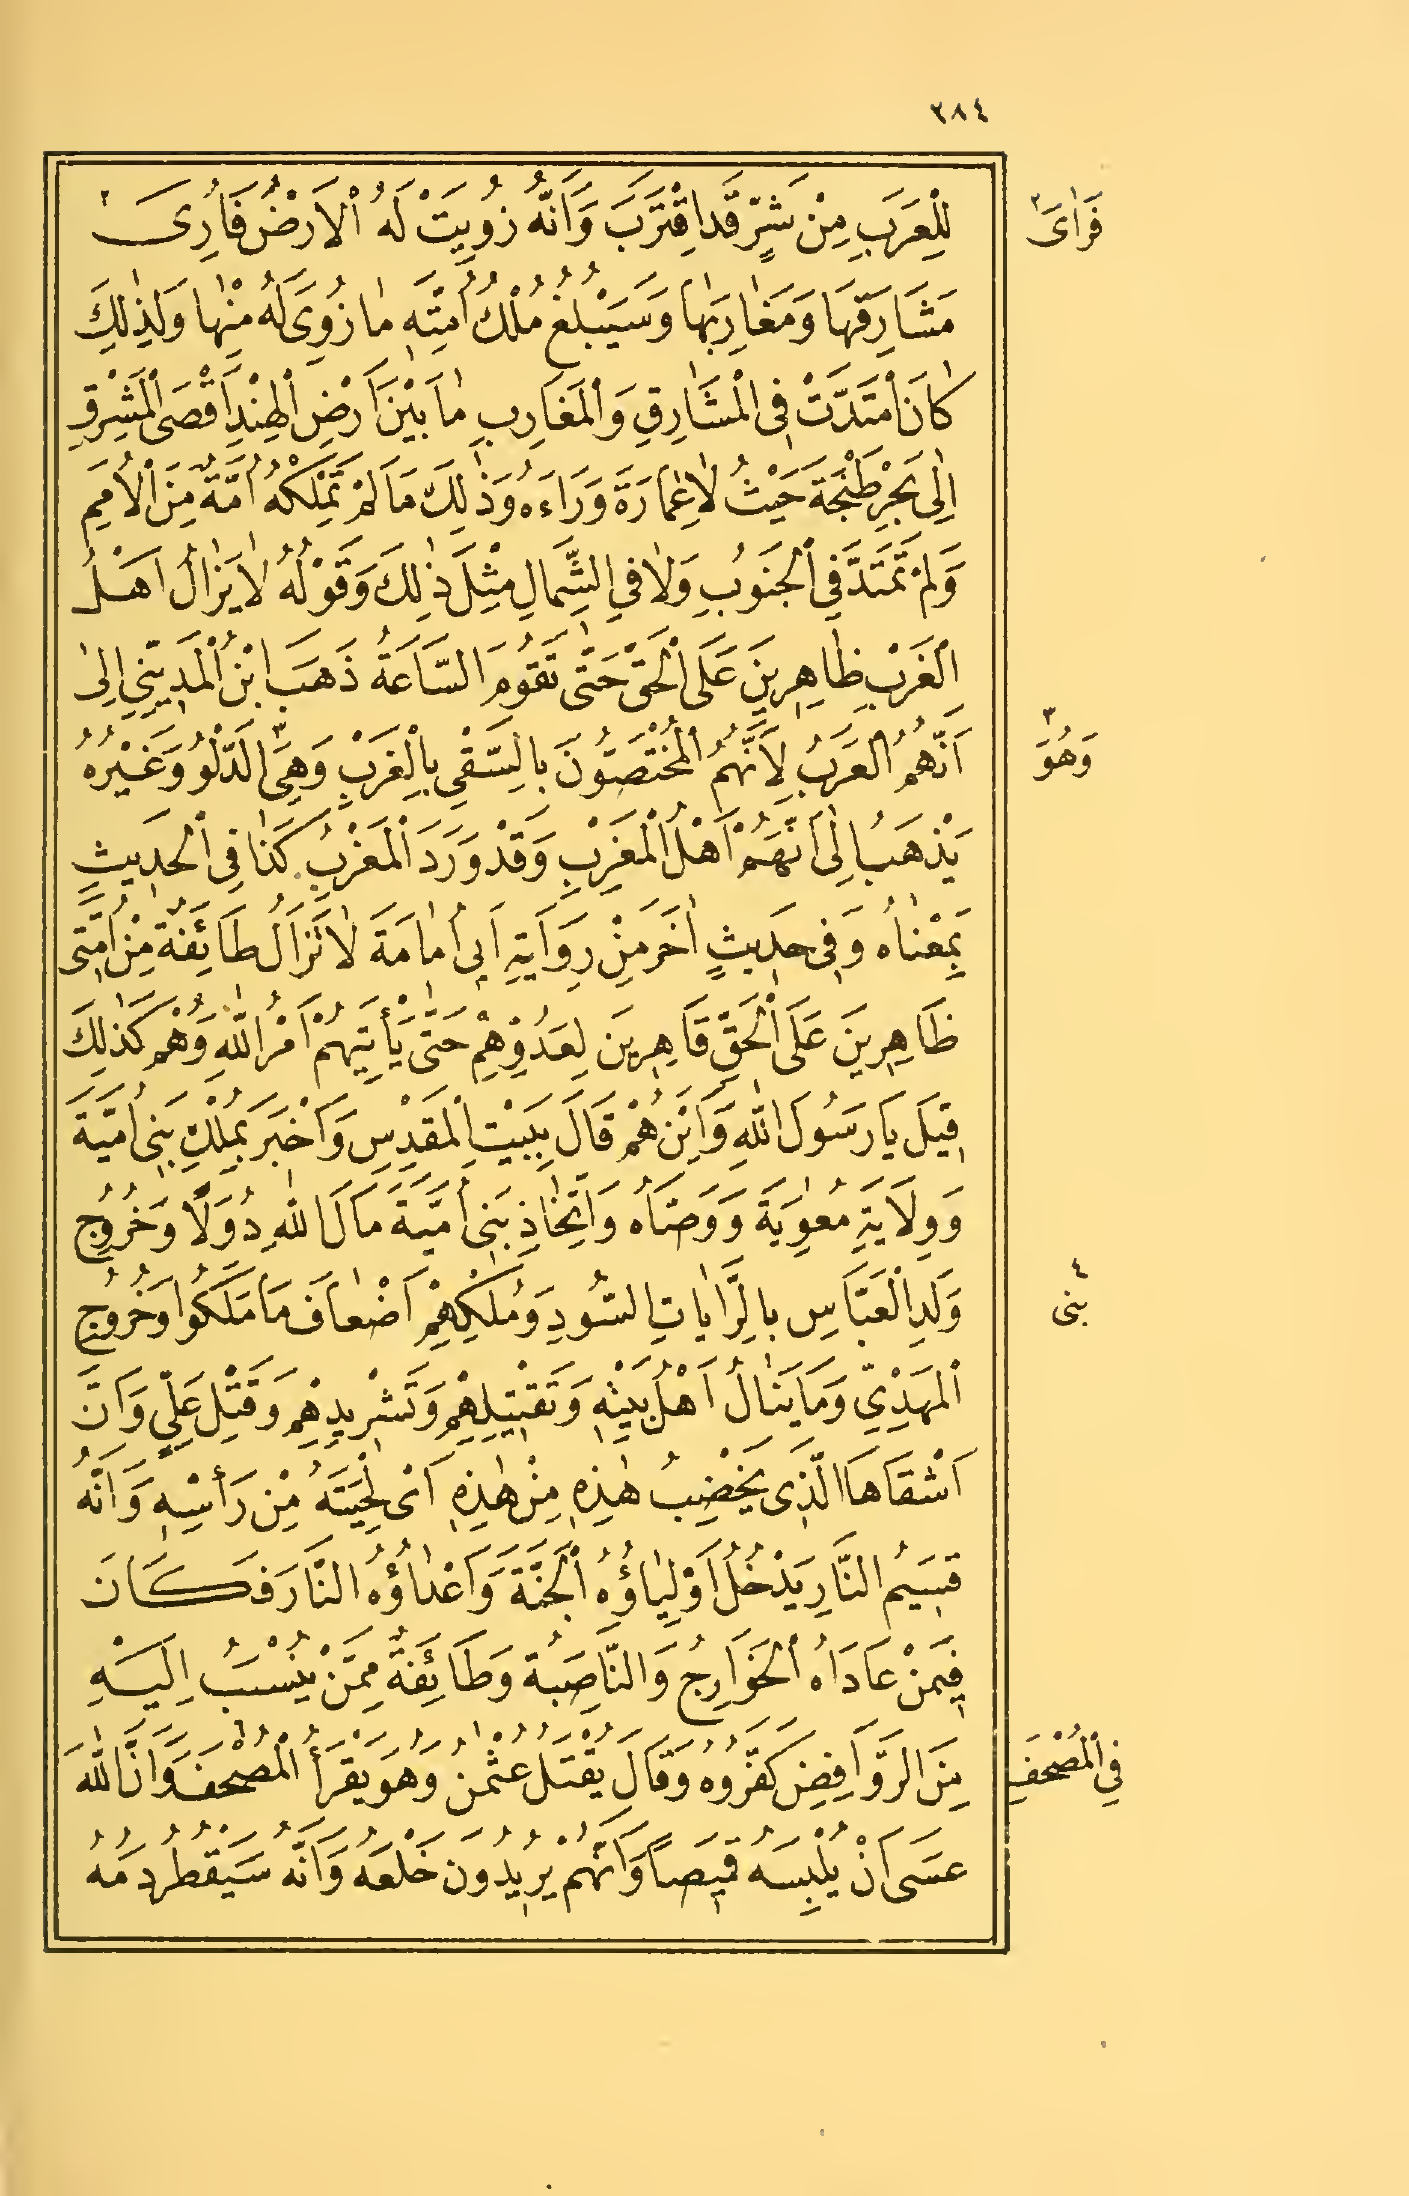 ٢٨٤
لِلْعَرَبِ مِنْ شَرٍّ قَدِ اقْتَرَبَ وَاَنَّهُ زُوِيَتْ لَهُ الْاَرْضُ فَاُرِىَ ٢
فَرَاٰىَ ٢
مَشَارِقَهَا وَمَغَارِبَهَا وَسَيَبْلُغُ مُلْكُ اُمَّتِهِ مَا زُوِىَ لَهُ مِنْهَا وَلِذٰلِكَ
كَانَ امْتَدَّتْ فِى الْمَشَارِقِ وَالْمَغَارِبِ مَا بَيْنَ اَرْضِ الْهِنْدِ اَقْصَى الْمَشْرِقِ
اِلٰى بَحْرِ طَنْجَةَ حَيْثُ لَا عِمَارَةَ وَرَاءَهُ وَذٰلِكَ مَا لَمْ تَمْلِكْهُ اُمَّةٌ مِنَ الْاُمَمِ
وَلَمْ تَمْتَدَّ فِي الْجَنُوبِ وَلَا فِي الشِّمَالِ مِثْلَ ذٰلِكَ وَقَوْلُهُ لَا يَزَالُ اَهْلُ
الْغَرْبِ ظَاهِرِينَ عَلَى الْحَقِّ حَتّٰى تَقُومَ السَّاعَةُ ذَهَبَ ابْنُ الْمَدِينِيِّ اِلٰى
اَنَّهُمُ الْعَرَبُ لِاَنَّهُمُ الْمُخْتَصُّونَ بِالسَّقْيِ بِالْغَرْبِ وَهِىَ ٣ الدَّلْوُ وَغَيْرُهُ
وَهُوَ ٣
يَذْهَبُ اِلٰى اَنَّهُمْ اَهْلُ الْمَغْرِبِ وَقَدْ وَرَدَ الْمَغْرِبُ كَذَا فِى الْحَدِيثِ
بِمَعْنَاهُ وَفِى حَدِيثٍ اٰخَرَ مِنْ رِوَايَةِ اَبِى اُمَامَةَ لَا تَزَالُ طَائِفَةٌ مِنْ اُمَّتِى
ظَاهِرِينَ عَلَى الْحَقِّ قَاهِرِينَ لِعَدُوِّهِمْ حَتّٰى يَأْتِيَهُمْ اَمْرُ اللهِ وَهُمْ كَذٰلِكَ
قِيلَ يَا رَسُولَ اللهِ وَاَيْنَ هُمْ قَالَ بِبَيْتِ الْمَقْدِسِ وَاَخْبَرَ بِمُلْكِ بَنِى اُمَيَّةَ
وَوِلَايَةِ مُعٰوِيَةَ وَوَصَّاهُ وَاتِّخَاذِ بَنِى اُمَيَّةَ مَالَ اللهِ دُوَلًا وَخُرُوجِ
وَلَدِ الْعَبَّاسِ بِالرَّايَاتِ السُّودِ وَمُلْكِهِمْ اَضْعَافَ مَا مَلَكُوا وَخُرُوجِ
٤ بنى
الْمَهْدِيِّ وَمَا يَنَالُ اَهْلُ بَيْتِهِ وَتَقْتِيلِهِمْ وَتَشْرِيدِهِمْ وَقَتْلِ عَلِيٍّ وَاَنَّ
اَشْقَاهَا الَّذِى يَخْضِبُ هٰذِهِ مِنْ هٰذِهِ اَىْ لِحْيَتَهُ مِنْ رَأْسِهِ وَاَنَّهُ
قَسِيمُ النَّارِ يَدْخُلُ اَوْلِيَاؤُهُ الْجَنَّةَ وَاَعْدَاؤُهُ النَّارَ فَكَانَ
فِيمَنْ عَادَاهُ الْخَوَارِجُ وَالنَّاصِبَةُ وَطَائِفَةٌ مِمَّنْ يُنْسَبُ اِلَيْهِ
مِنَ الرَّوَافِضِ كَفَّرُوهُ وَقَالَ يُقْتَلُ عُثْمٰنُ وَهُوَ يَقْرَأُ الْمُصْحَفَ وَاَنَّ اللهَ
فِي الْمُصْحَفِ
عَسَى اَنْ يُلْبِسَهُ قَمِيصًا وَاَنَّهُمْ يُرِيدُونَ خَلْعَهُ وَاَنَّهُ سَيَقْطُرُ دَمُهُ